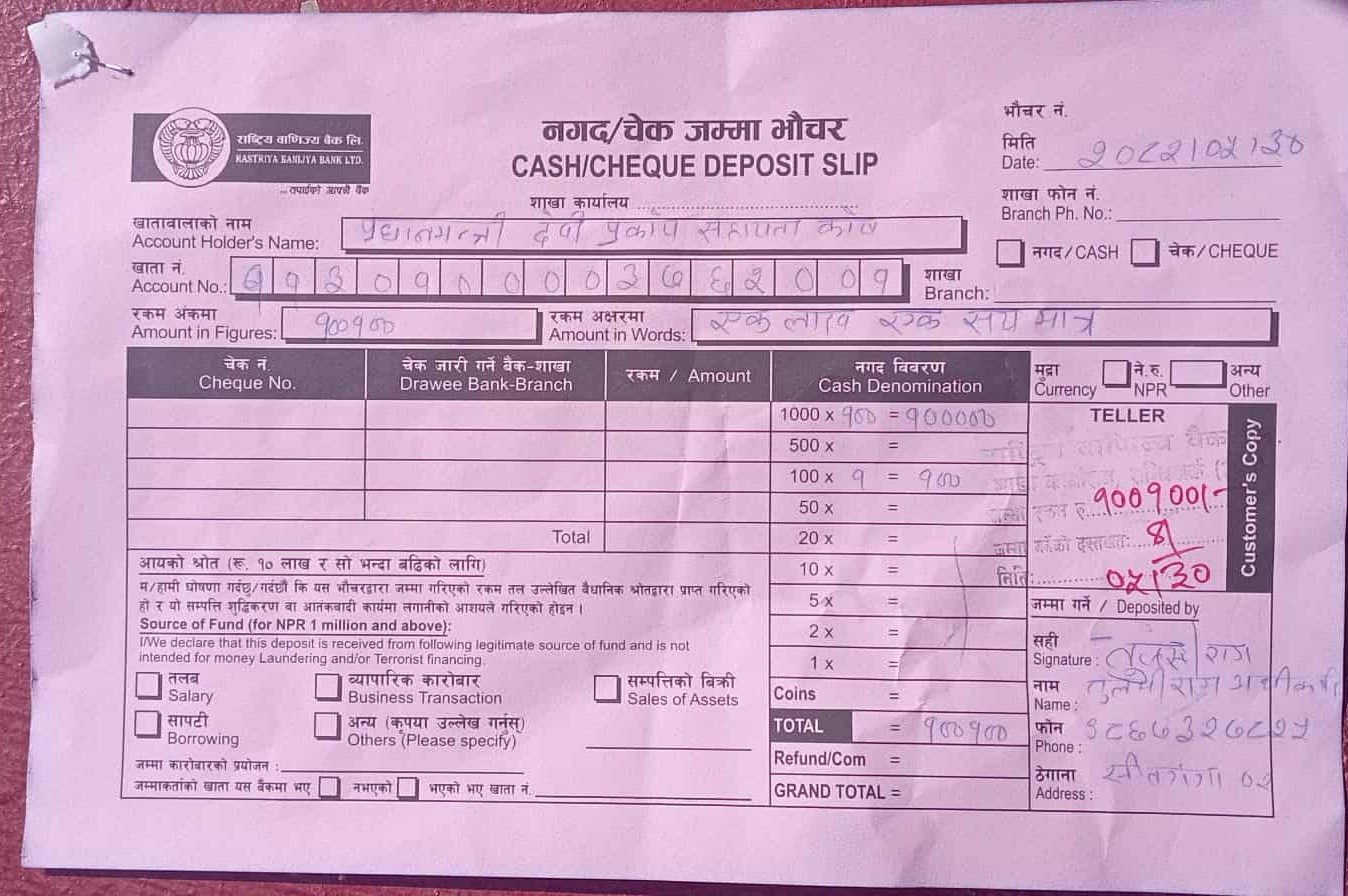 राष्ट्रिय वाणिज्य बैंक लि.
RASTRIYA BANIJYA BANK LTD.
... तपाईंको आफ्नै बैंक
नगद/चेक जम्मा भौचर
CASH/CHEQUE DEPOSIT SLIP
शाखा कार्यालय
भौचर नं.
मिति
Date: २०८२।०५।३०
शाखा फोन नं.
Branch Ph. No.:
खातावालाको नाम
Account Holder's Name: प्रधानमन्त्री दैवी प्रकोप सहायता कोष
नगद/CASH चेक/CHEQUE
खाता नं.
Account No.: ११३०१०००३७६२००१
शाखा
Branch:
रकम अंकमा
Amount in Figures: १००१००
रकम अक्षरमा
Amount in Words: एक लाख एक सय मात्र
चेक नं.
Cheque No.
चेक जारी गर्ने बैंक-शाखा
Drawee Bank-Branch
रकम / Amount
नगद विवरण
Cash Denomination
मुद्रा
Currency
ने.रु.
NPR
अन्य
Other
1000 x १०० = १०००००
500 x =
100 x १ = १००
50 x =
20 x =
10 x =
5 x =
2 x =
1 x =
Coins =
TOTAL = १००१००
Refund/Com =
GRAND TOTAL =
Total
TELLER
राष्ट्रिय वाणिज्य बैंक
१००१००।-
मिति: ०५।३०
Customer's Copy
आयको श्रोत (रू. १० लाख र सो भन्दा बढिको लागि)
म/हामी घोषणा गर्दछु/गर्दछौं कि यस भौचरद्वारा जम्मा गरिएको रकम तल उल्लेखित वैधानिक श्रोतद्वारा प्राप्त गरिएको
हो र यो सम्पत्ति शुद्धिकरण वा आतंकवादी कार्यमा लगानीको आशयले गरिएको होइन ।
Source of Fund (for NPR 1 million and above):
I/We declare that this deposit is received from following legitimate source of fund and is not
intended for money Laundering and/or Terrorist financing.
तलब
Salary
व्यापारिक कारोबार
Business Transaction
सम्पत्तिको बिक्री
Sales of Assets
सापटी
Borrowing
अन्य (कृपया उल्लेख गर्नुस्)
Others (Please specify)
जम्मा कारोबारको प्रयोजन :
जम्माकर्ताको खाता यस बैंकमा भए नभएको भएको भए खाता नं.
जम्मा गर्ने / Deposited by
सही
Signature :
नाम
Name :
फोन
Phone : ९८६७३२७८२५
ठेगाना
Address : सीतगंगा ०२